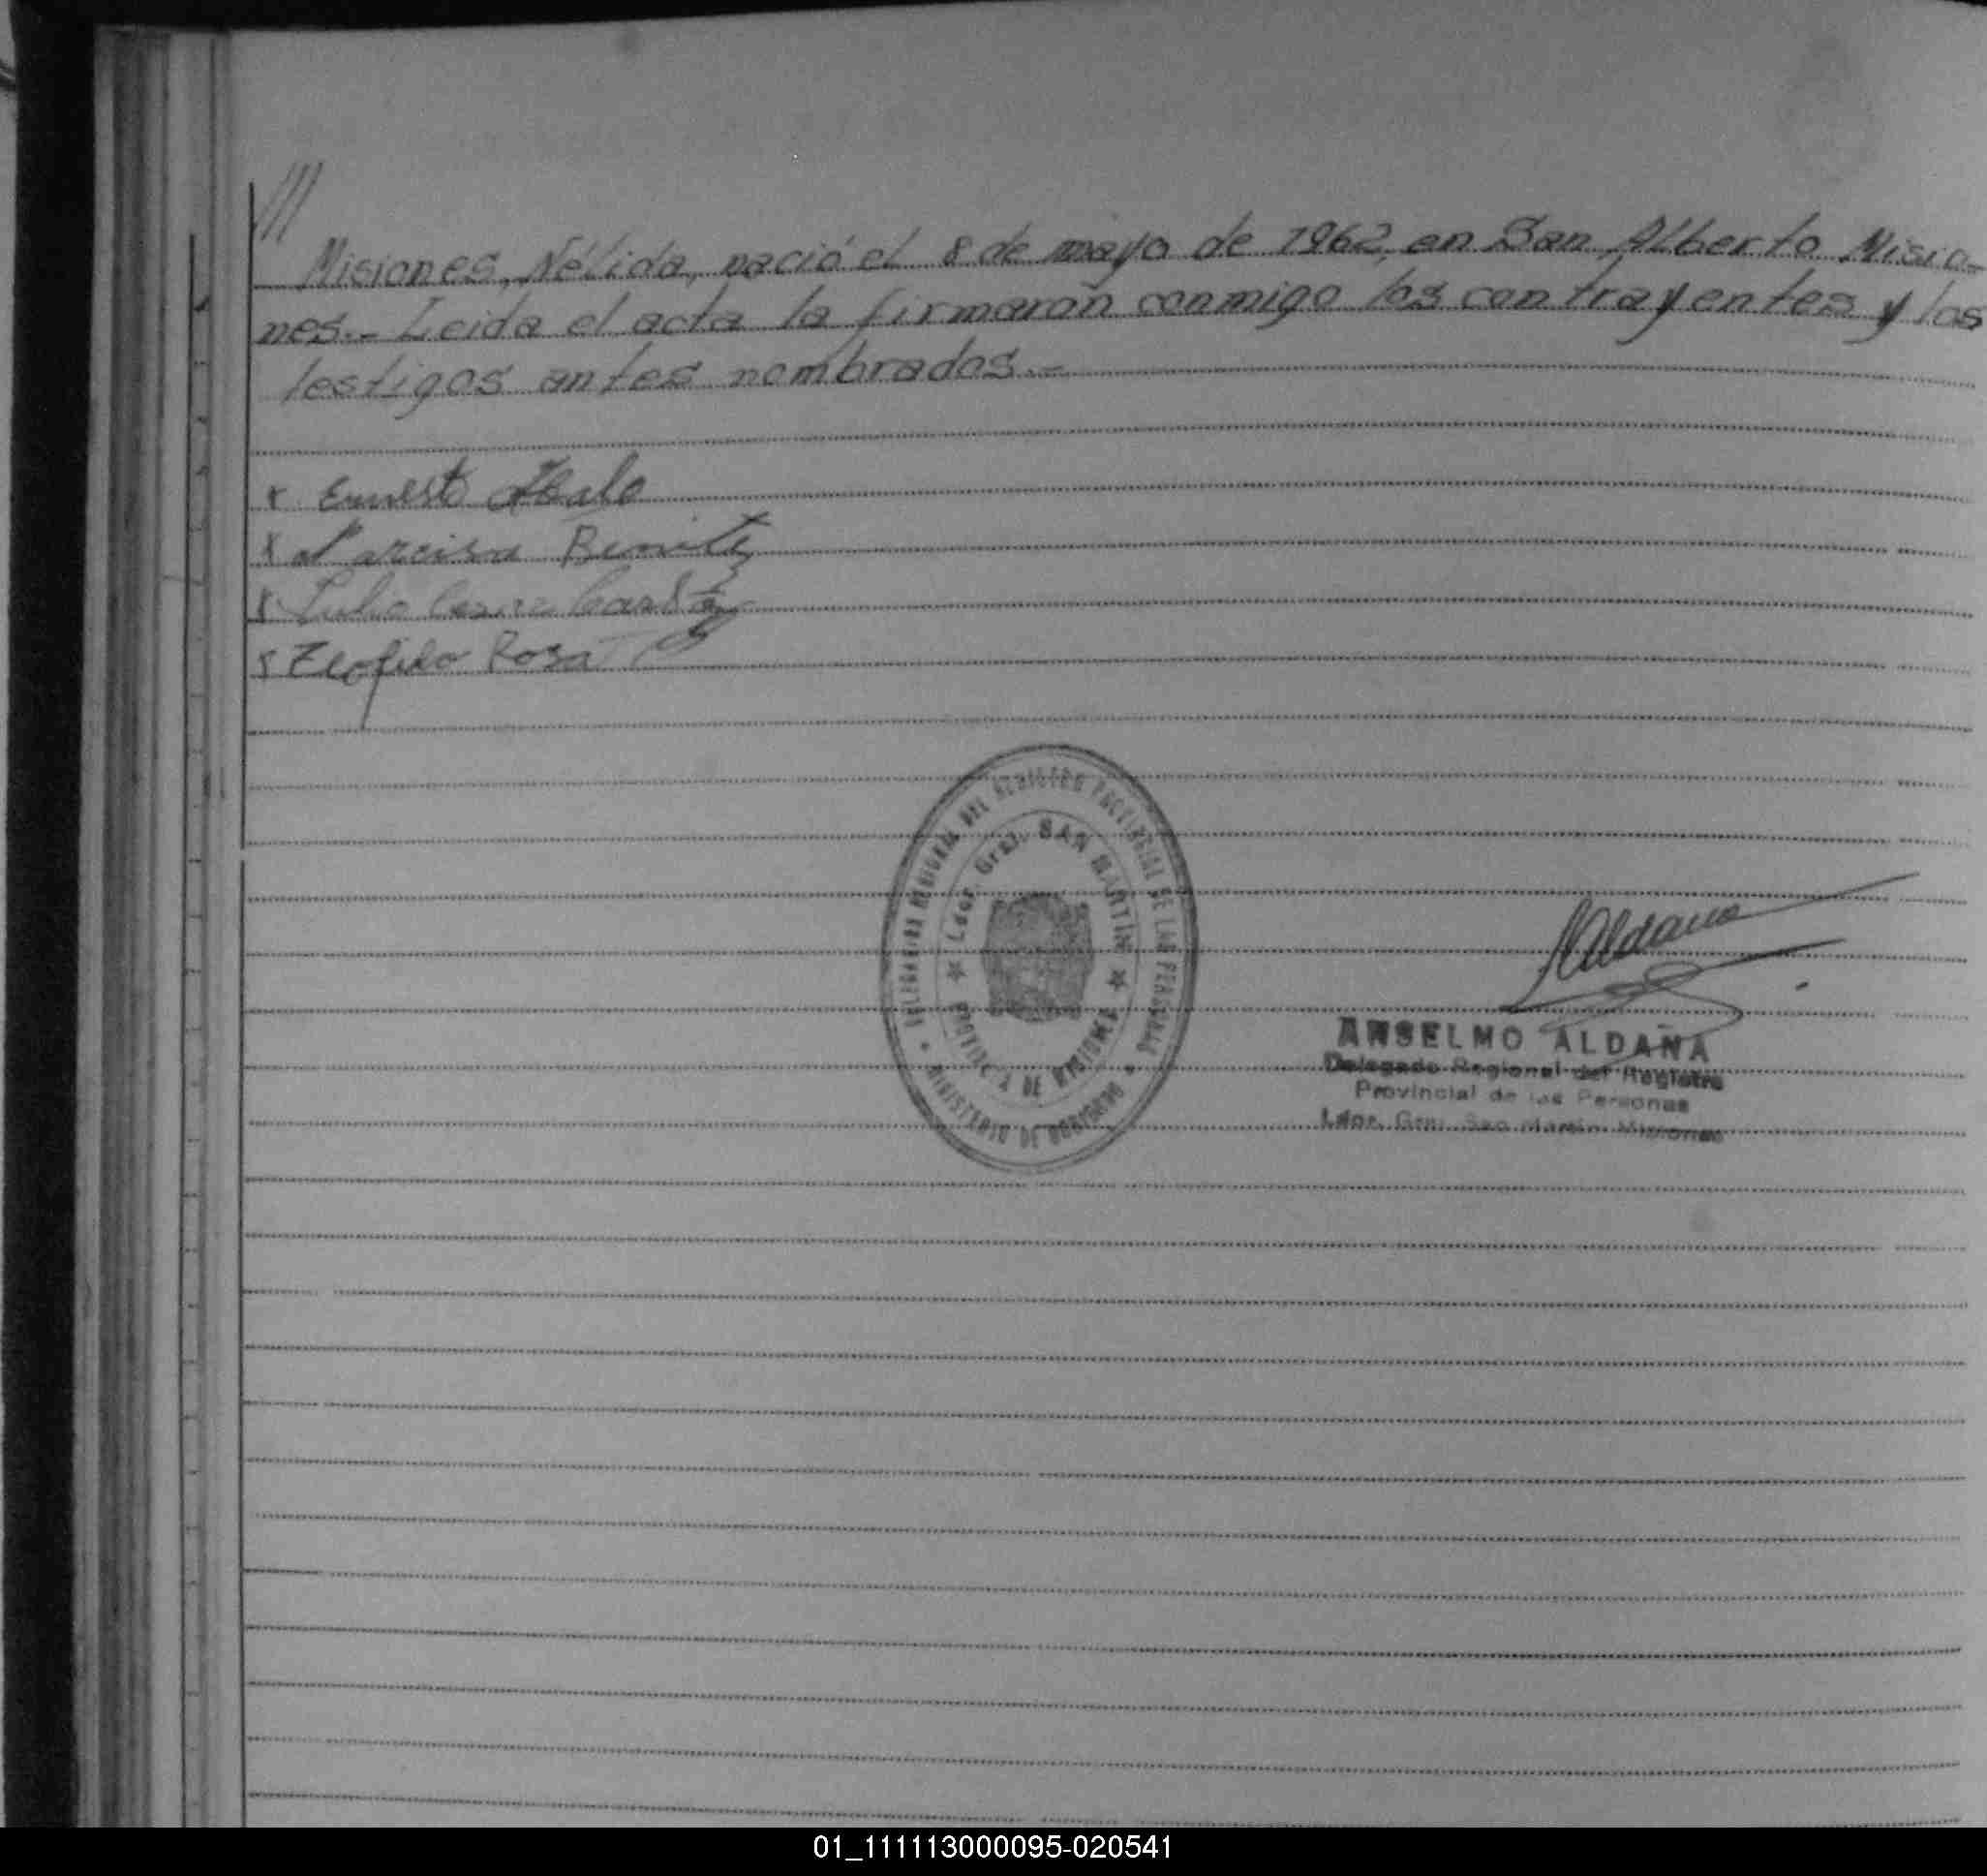 ///
Misiones, Nélida, nació el 8 de mayo de 1962, en San Alberto Misio-
nes.- Leida el acta la firmaron conmigo los contrayentes y los
testigos antes nombrados.-
x Ernesto
x Narcisa Benitez
x Julio Cesar
x Teofilo Rosa
DEL REGISTRO PROVINCIAL DE LAS PERSONAS
Ldor. Gral. SAN MARTIN
PROVINCIA DE MISIONES
MINISTERIO DE GOBIERNO
Aldana
ANSELMO ALDAÑA
Delegado Regional del Registro
Provincial de las Personas
Ldor. Gral. San Martin Misiones
01_111113000095-020541